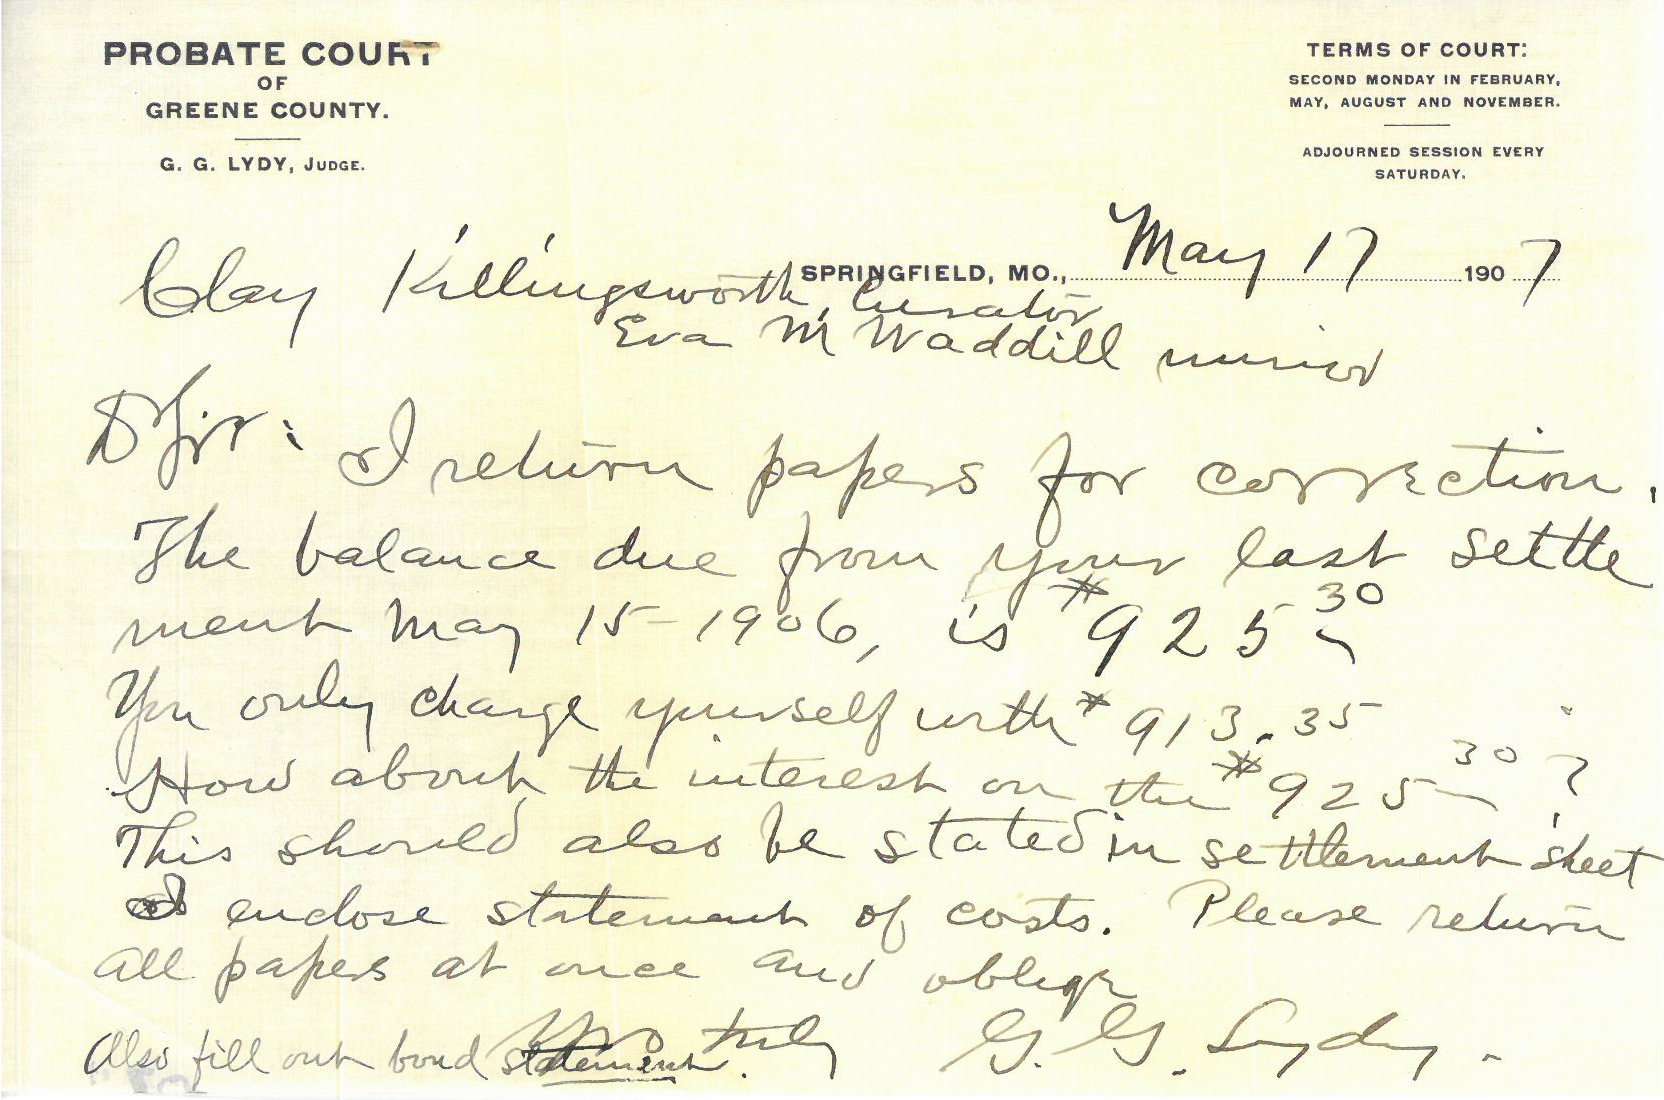 PROBATE COURT
OF
GREENE COUNTY.
G. G. LYDY, JUDGE.
TERMS OF COURT:
SECOND MONDAY IN FEBRUARY,
MAY, AUGUST AND NOVEMBER.
ADJOURNED SESSION EVERY
SATURDAY.
SPRINGFIELD, MO., May 17 1907
Clay Killingsworth, Curator
Eva M Waddill minor
D Sir: I return papers for correction.
The balance due from your last settle
ment May 15-1906, is $925 30
You only charge yourself with $913.35
How about the interest on the $925 30?
This should also be stated in settlement sheet
I enclose statement of costs. Please return
all papers at once and oblige
Yrs truly G. G. Lydy.
Also fill out bond statement.